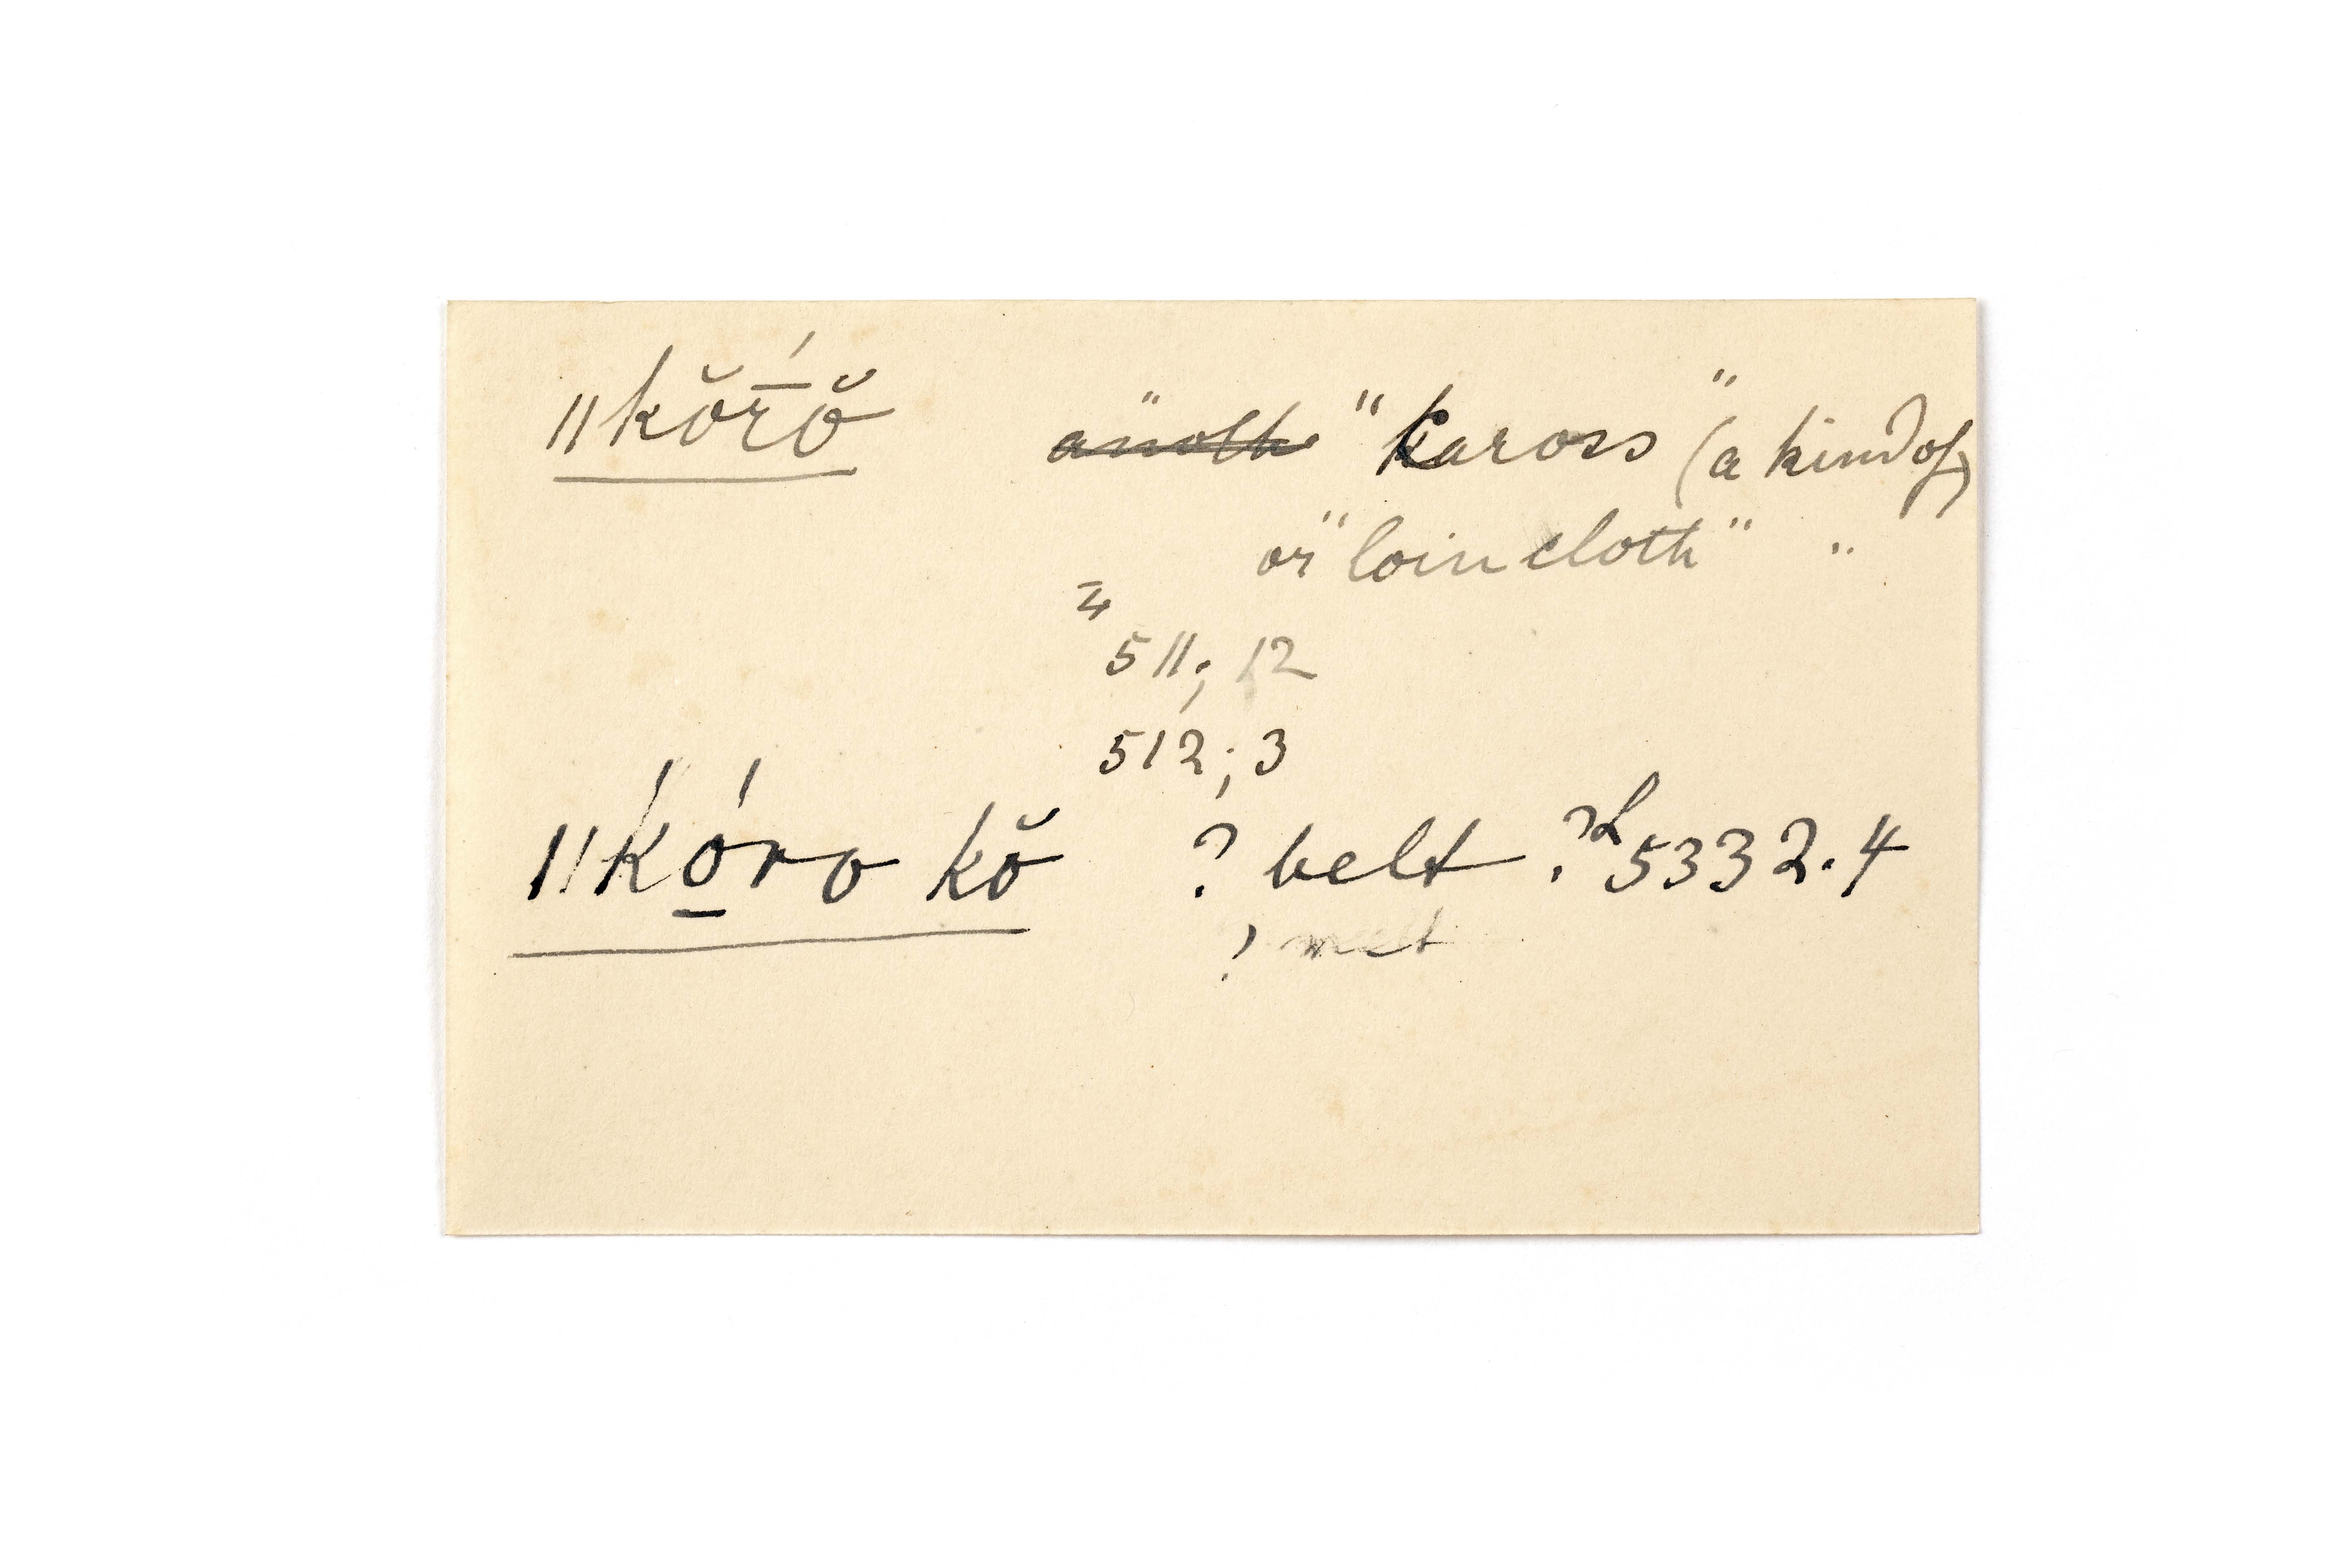 ǁkŏr̄́ŏ "anoth "kaross" (a kind of)
or "loin cloth" "
511; 12
512; 3
ǁkó̠ro kŏ ? belt ? L 5332.4
?